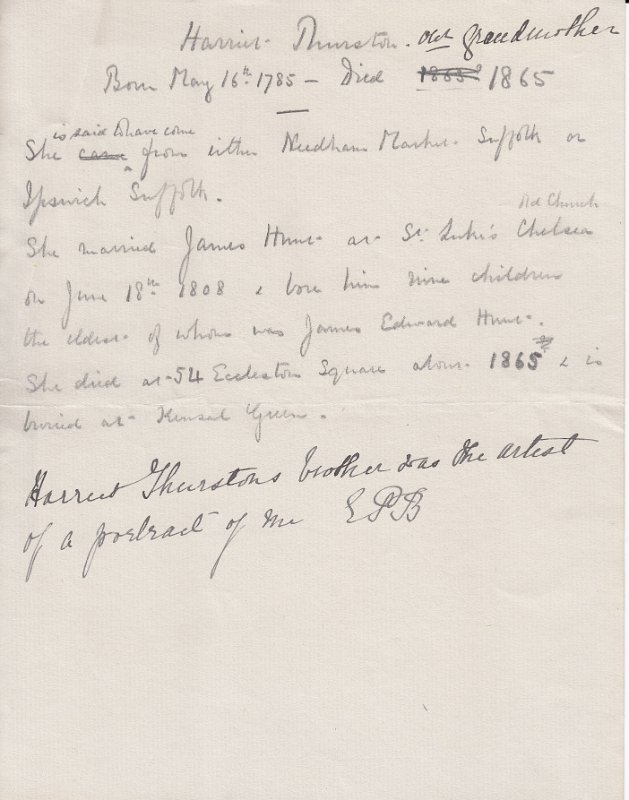 Harriet Thurston. our grandmother
Born May 16th 1785 – Died 1865? 1865
is said to have come
She came from either Needham Market Suffolk or
Ipswich Suffolk.
Old Church
She married James Hunt at St. Luke's Chelsea
on June 18th 1808 & bore him nine children
the eldest of whom was James Edward Hunt.
She died at 54 Eccleston Square about 1865 & is
buried at Kensal Green.
Harriet Thurstons brother was the artest
of a portrait of me EPB